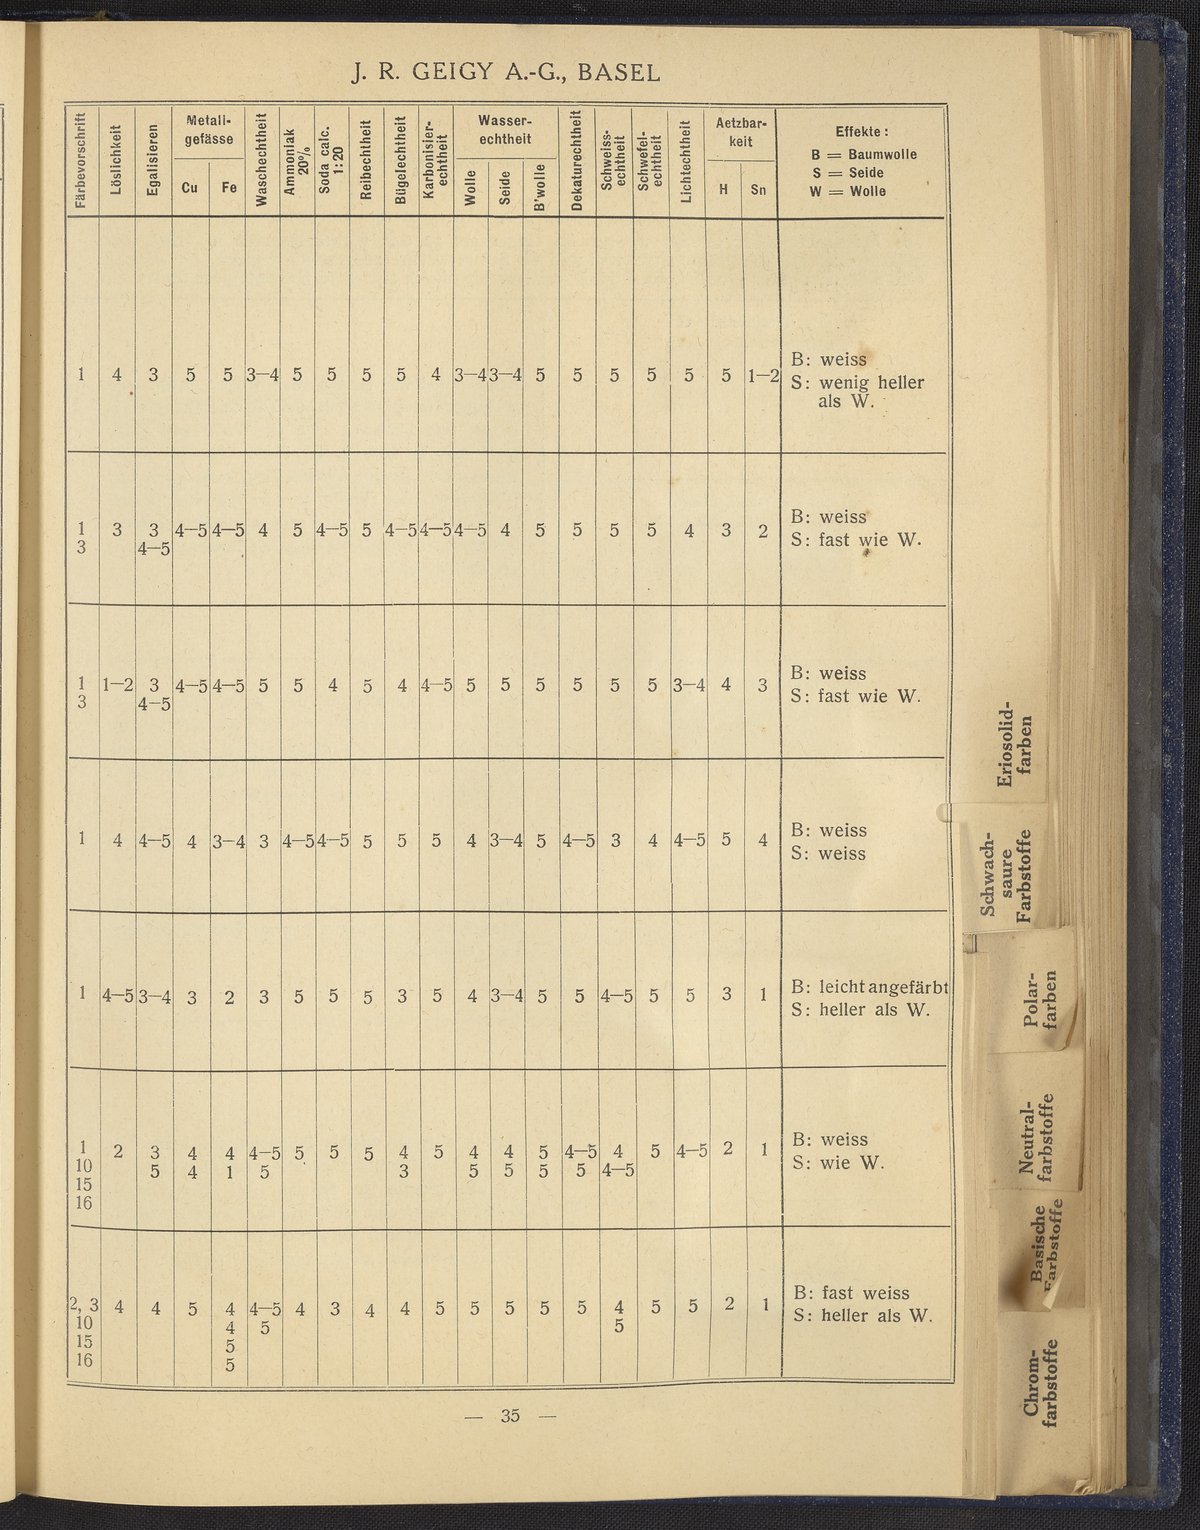 J. R. GEIGY A.-G., BASEL
Färbevorschrift | Löslichkeit | Egalisieren | Metallgefässe Cu | Metallgefässe Fe | Waschechtheit | Ammoniak 20% | Soda calc. 1:20 | Reibechtheit | Bügelechtheit | Karbonisier-echtheit | Wasser-echtheit Wolle | Seide | B'wolle | Dekaturechtheit | Schweiss-echtheit | Schwefel-echtheit | Lichtechtheit | Aetzbar-keit H | Sn | Effekte :
B = Baumwolle
S = Seide
W = Wolle
1 4 3 5 5 3—4 5 5 5 5 4 3—4 3—4 5 5 5 5 5 5 1—2
B: weiss
S: wenig heller
als W.
1 3 3 4—5 4—5 4 5 4—5 5 4—5 4—5 4—5 4 5 5 5 5 4 3 2
3 4—5
B: weiss
S: fast wie W.
1 1—2 3 4—5 4—5 5 5 4 5 4 4—5 5 5 5 5 5 5 3—4 4 3
3 4—5
B: weiss
S: fast wie W.
1 4 4—5 4 3—4 3 4—5 4—5 5 5 5 4 3—4 5 4—5 3 4 4—5 5 4
B: weiss
S: weiss
1 4—5 3—4 3 2 3 5 5 5 3 5 4 3—4 5 5 4—5 5 5 3 1
B: leicht angefärbt
S: heller als W.
1 2 3 4 4 4—5 5 5 5 4 5 4 4 5 4—5 4 5 4—5 2 1
10 5 4 1 5 3 5 5 5 5 4—5
15
16
B: weiss
S: wie W.
2, 3 4 4 5 4 4—5 4 3 4 4 5 5 5 5 5 4 5 5 2 1
10 4 5 5
15 5
16 5
B: fast weiss
S: heller als W.
— 35 —
Eriosolid-
farben
Schwach-
saure
Farbstoffe
Polar-
farben
Neutral-
farbstoffe
Basische
Farbstoffe
Chrom-
farbstoffe